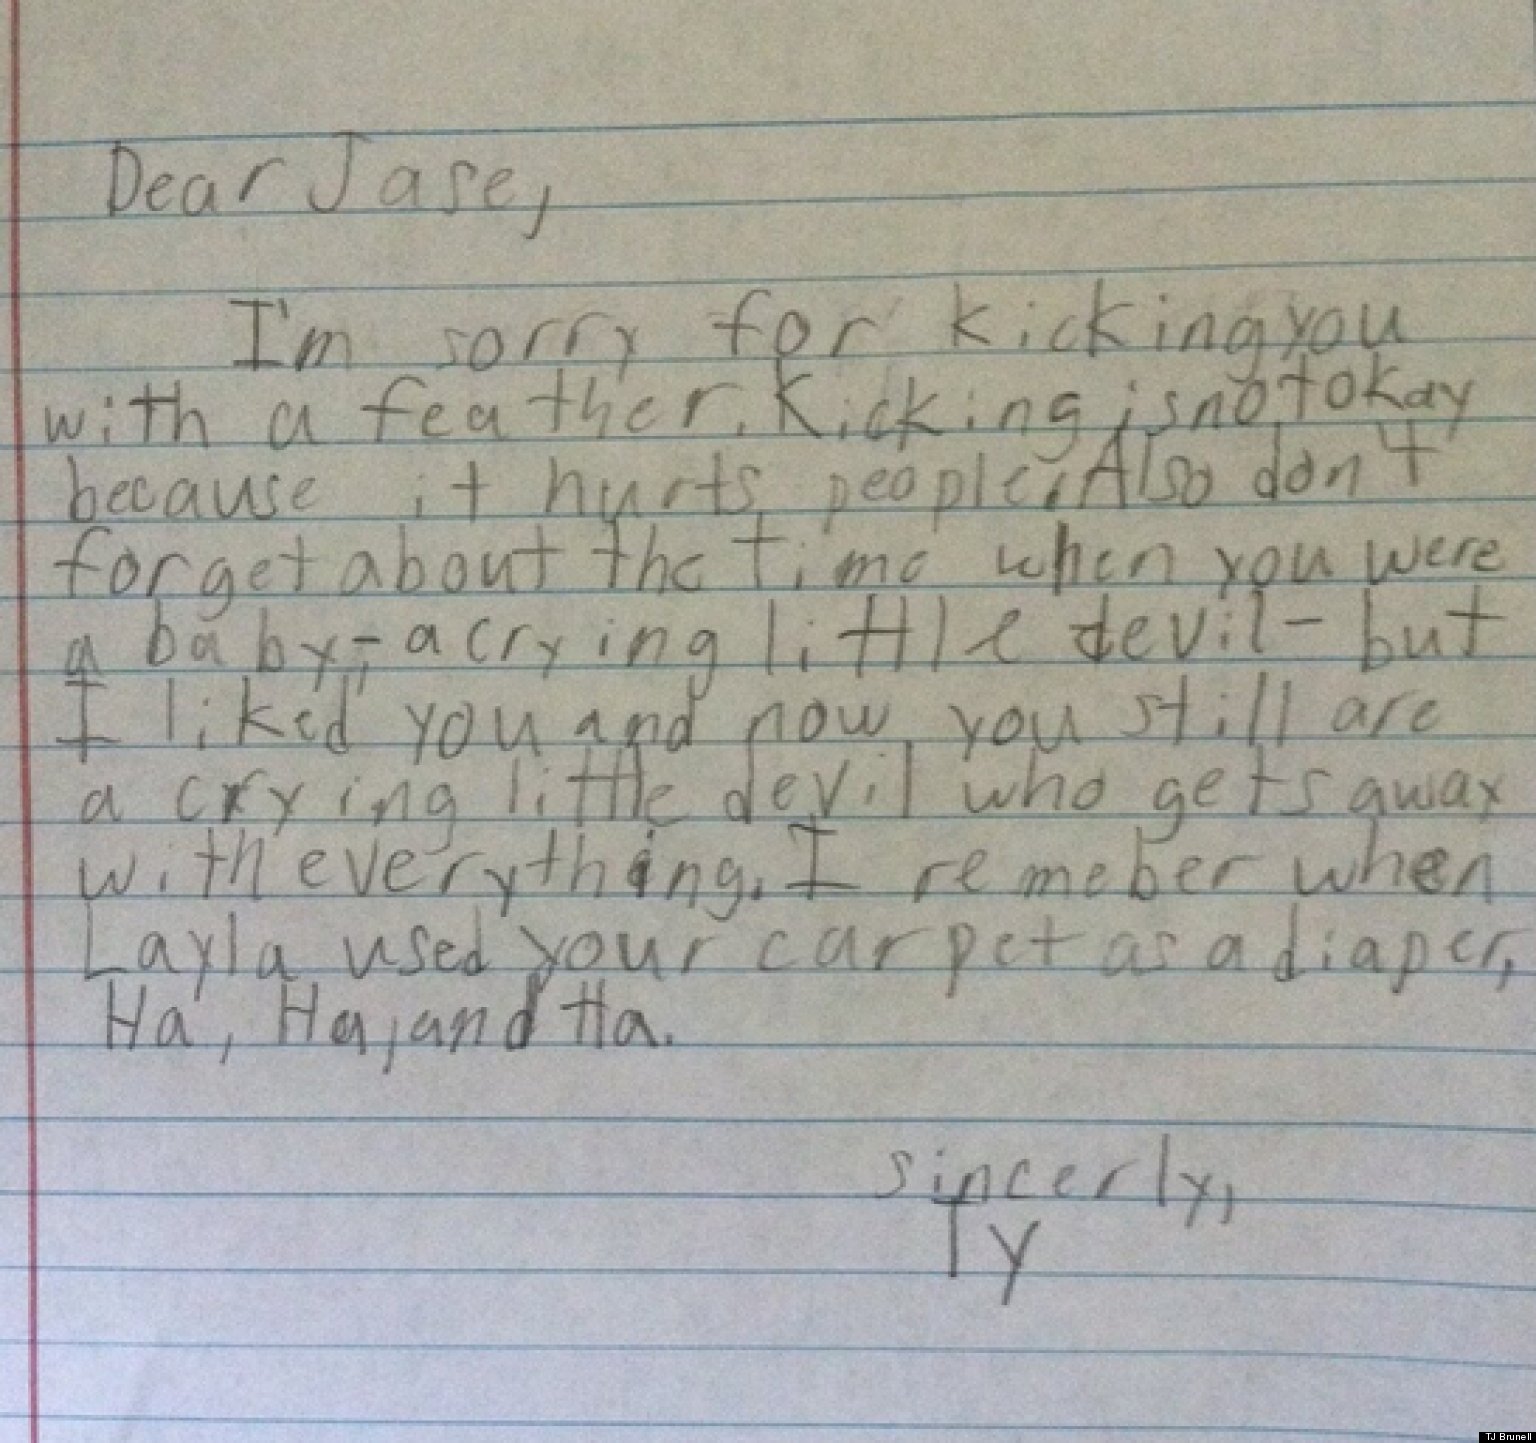 Dear Jase,
I'm sorry for kicking you
with a feather. Kicking is not okay
because it hurts people. Also don't
forget about the time when you were
a baby - a crying little devil - but
I liked you and now you still are
a crying little devil who gets away
with everything. I remeber when
Layla used your carpet as a diaper,
Ha, Ha, and Ha.
sincerly,
Ty
TJ Brunell